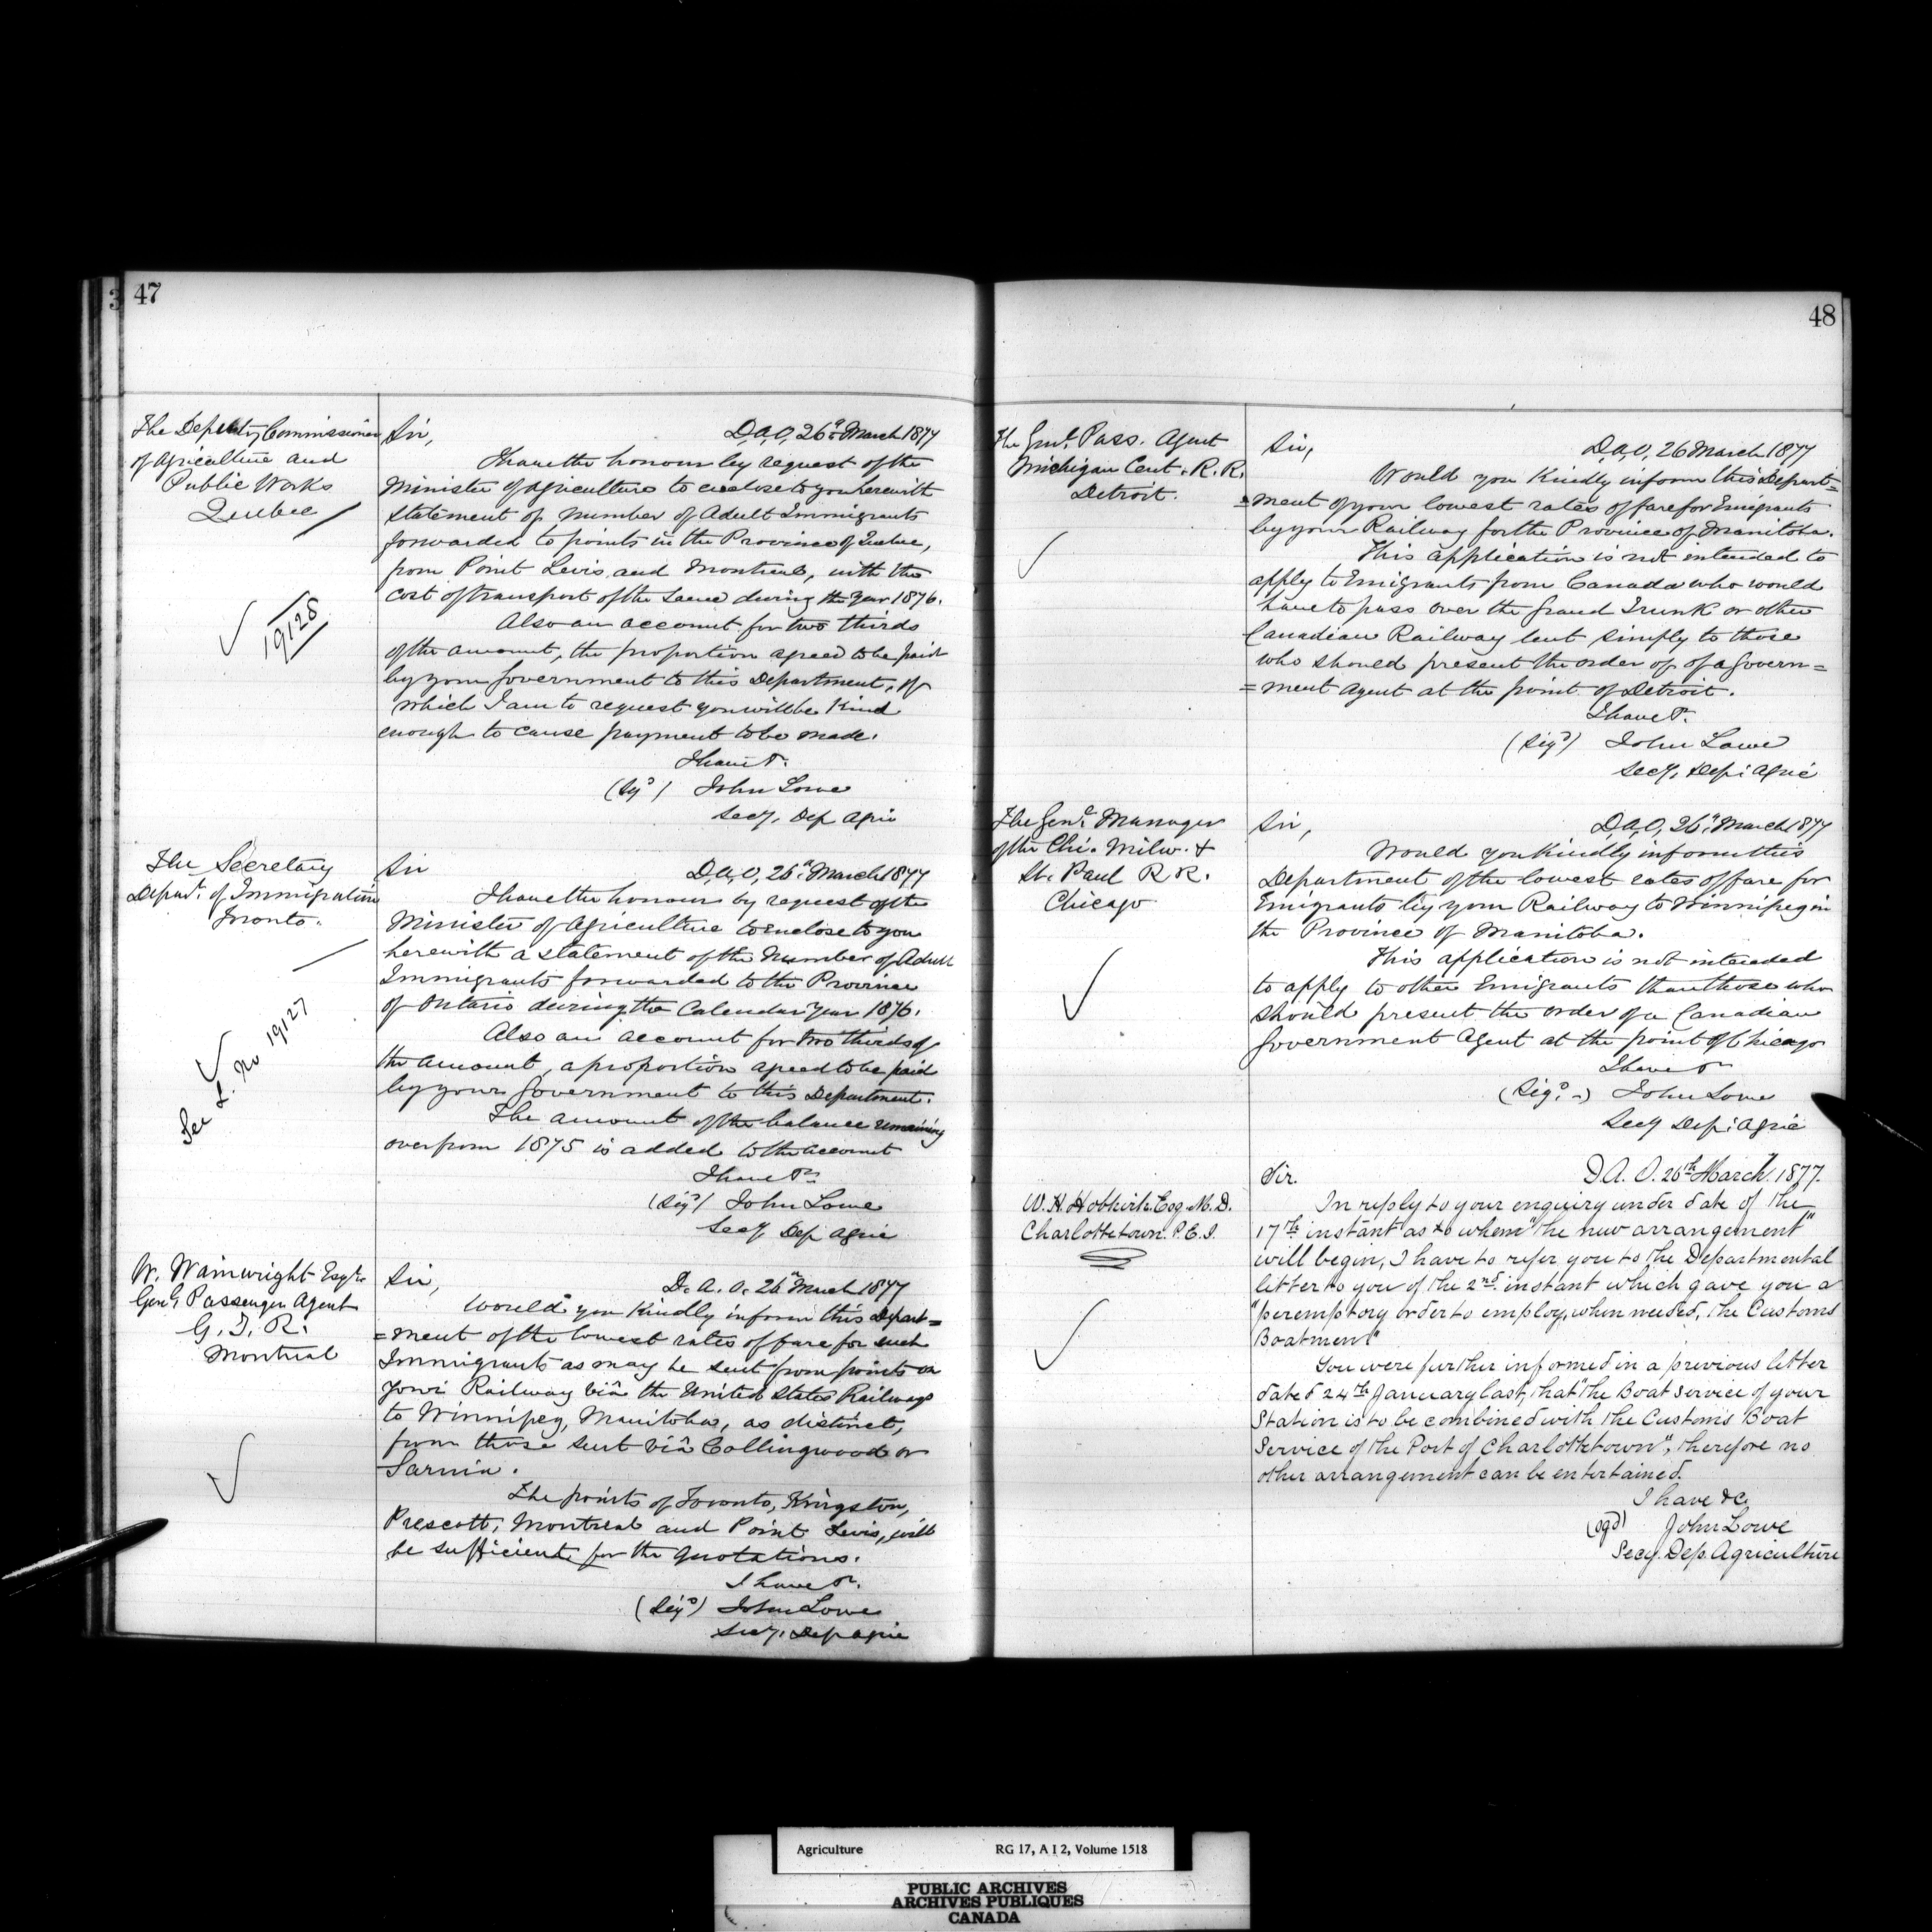 47
The Deputy Commissioner
of Agriculture and
Public Works
Quebec
19128
Sir,
D.A.O, 26th March 1877
I have the honour by request of the
Minister of Agriculture to enclose to you herewith
statement of number of Adult Immigrants
forwarded to points in the Province of Quebec,
from Point Levis and Montreal, with the
cost of transport of the same during the year 1876.
Also an account for two thirds
of the amount, the proportion agreed to be paid
by your Government to this Department, of
which I am to request you will be kind
enough to cause payment to be made.
I have &c.
(Sgd) John Lowe
Secy. Dep Agric
The Secretary
Depart. of Immigration
Toronto.
See L. No 19127
Sir
D.A.O, 26th March 1877
I have the honour by request of the
Minister of Agriculture to enclose to you
herewith a statement of the Number of Adult
Immigrants forwarded to the Province
of Ontario during the Calendar Year 1876.
Also an account for two thirds of
the amount, a proportion agreed to be paid
by your Government to this Department.
The amount of the balance remaining
over from 1875 is added to the account
I have &c
(Sigd) John Lowe
Secy Dep Agric
W. Wainwright Esqre
Genl Passenger Agent
G. T. R.
Montreal
Sir,
D. A. O. 26th March 1877
Would you kindly inform this Depart=
=ment of the lowest rates of fare for such
Immigrants as may be sent from points on
your Railway viâ the United States Railways
to Winnipeg, Manitoba, as distinct,
from those sent viâ Collingwood or
Sarnia.
The points of Toronto, Kingston,
Prescott, Montreal and Point Levis, will
be sufficient for the quotations.
I have &c.
(Sigd) John Lowe
Secy. Dep Agric
48
The Genl. Pass. Agent
Michigan Cent. R. R.
Detroit.
Sir,
D.A.O, 26 March 1877
Would you kindly inform this Depart=
=ment of your lowest rates of fare for Emigrants
by your Railway for the Province of Manitoba.
This application is not intended to
apply to Emigrants from Canada who would
have to pass over the Grand Trunk or other
Canadian Railway but simply to those
who should present the order of of a Govern=
=ment Agent at the point of Detroit.
I have &c.
(Sigd) John Lowe
Secy. Dep: Agric
The Genl. Manager
of the Chi. Milw. &
St. Paul R R.
Chicago
Sir,
D.A.O, 26th March 1877
Would you kindly inform this
Department of the lowest rates of fare for
Emigrants by your Railway to Winnipeg in
the Province of Manitoba.
This application is not intended
to apply to other Emigrants than those who
should present the order of a Canadian
Government Agent at the point of Chicago
I have &c
(Sigd.) John Lowe
Secy Dep: Agric
W. H. Hobkirk Esq. M. D.
Charlottetown. P. E. I.
Sir.
D. A. O. 26th March 1877.
In reply to your enquiry under date of the
17th instant as to when "the new arrangement"
will begin, I have to refer you to the Departmental
letter to you of the 2nd. instant which gave you a
"peremptory order to employ, when needed, the Customs
Boatmen"
You were further informed in a previous letter
dated 24th January last, that "the Boat Service of your
Station is to be combined with the Customs Boat
Service of the Port of Charlottetown", therefore no
other arrangement can be entertained.
I have &c
(sgd) John Lowe
Secy. Dep. Agriculture
Agriculture RG 17, A I 2, Volume 1518
PUBLIC ARCHIVES
ARCHIVES PUBLIQUES
CANADA